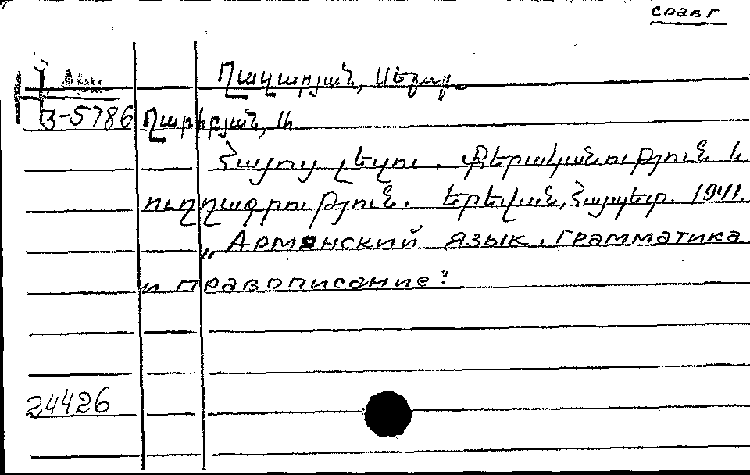 сравг
Ղազարյան, Սերաբ.
3-5786 Ղարիբյան, Ա
Հայոց լեզու. Քերականություն և
ուղղագրություն. Երևան, Հայպետ. 1941.
„Армянский язык. Грамматика
и правописание".
24426